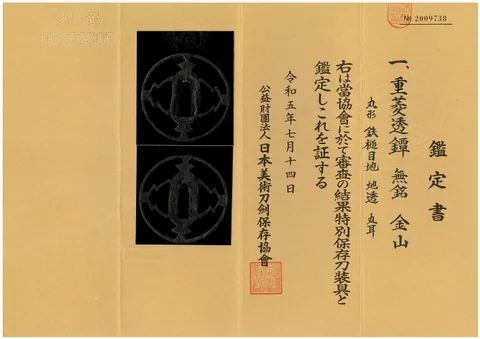 № 2009738
鑑定書
一、重菱透鐔 無銘 金山
丸形 鉄槌目地 地透 丸耳
右は當協會に於て審査の結果特別保存刀装具と
鑑定しこれを証する
令和五年七月十四日
公益財團法人 日本美術刀劍保存協會